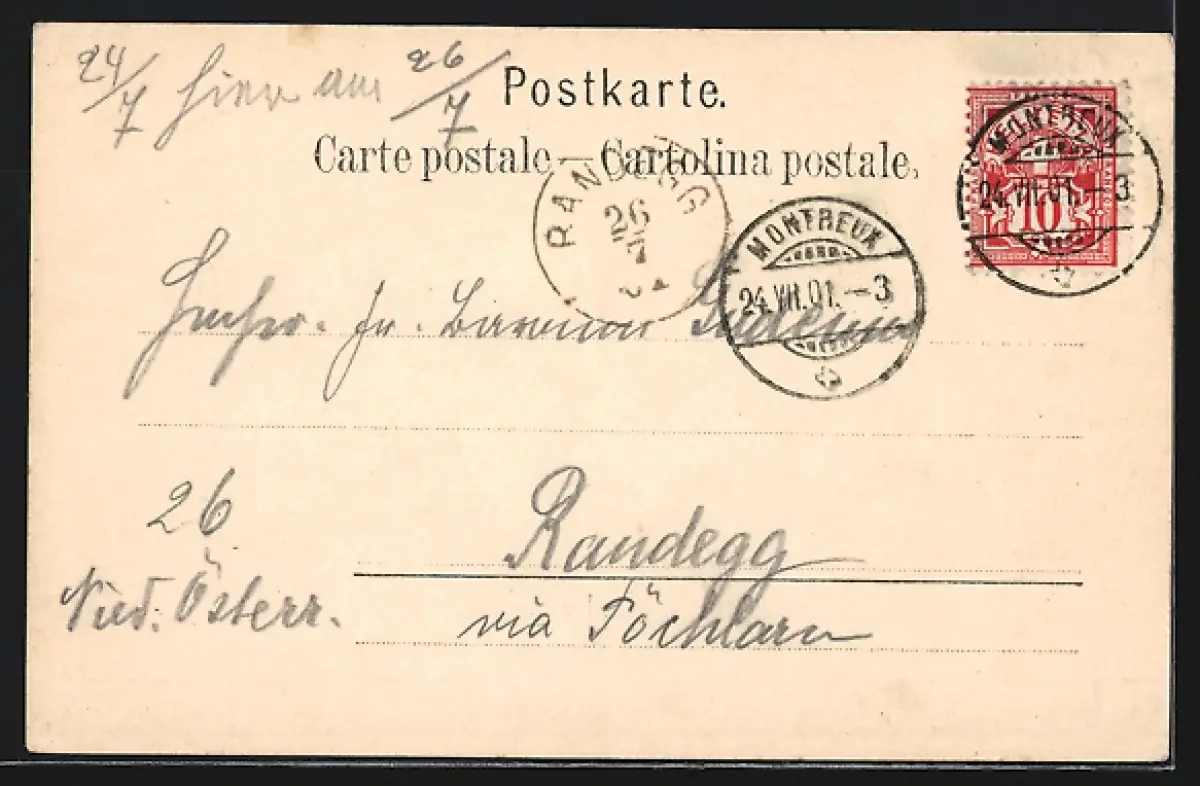 24/7 hier am 26/7
Postkarte.
Carte postale — Cartolina postale.
MONTREUX
24.VII.01.–3
10
RANDEGG
26
7
MONTREUX
24.VII.01.–3
fr. Baronin
26
Randegg
Nied. Österr.
via Pöchlarn